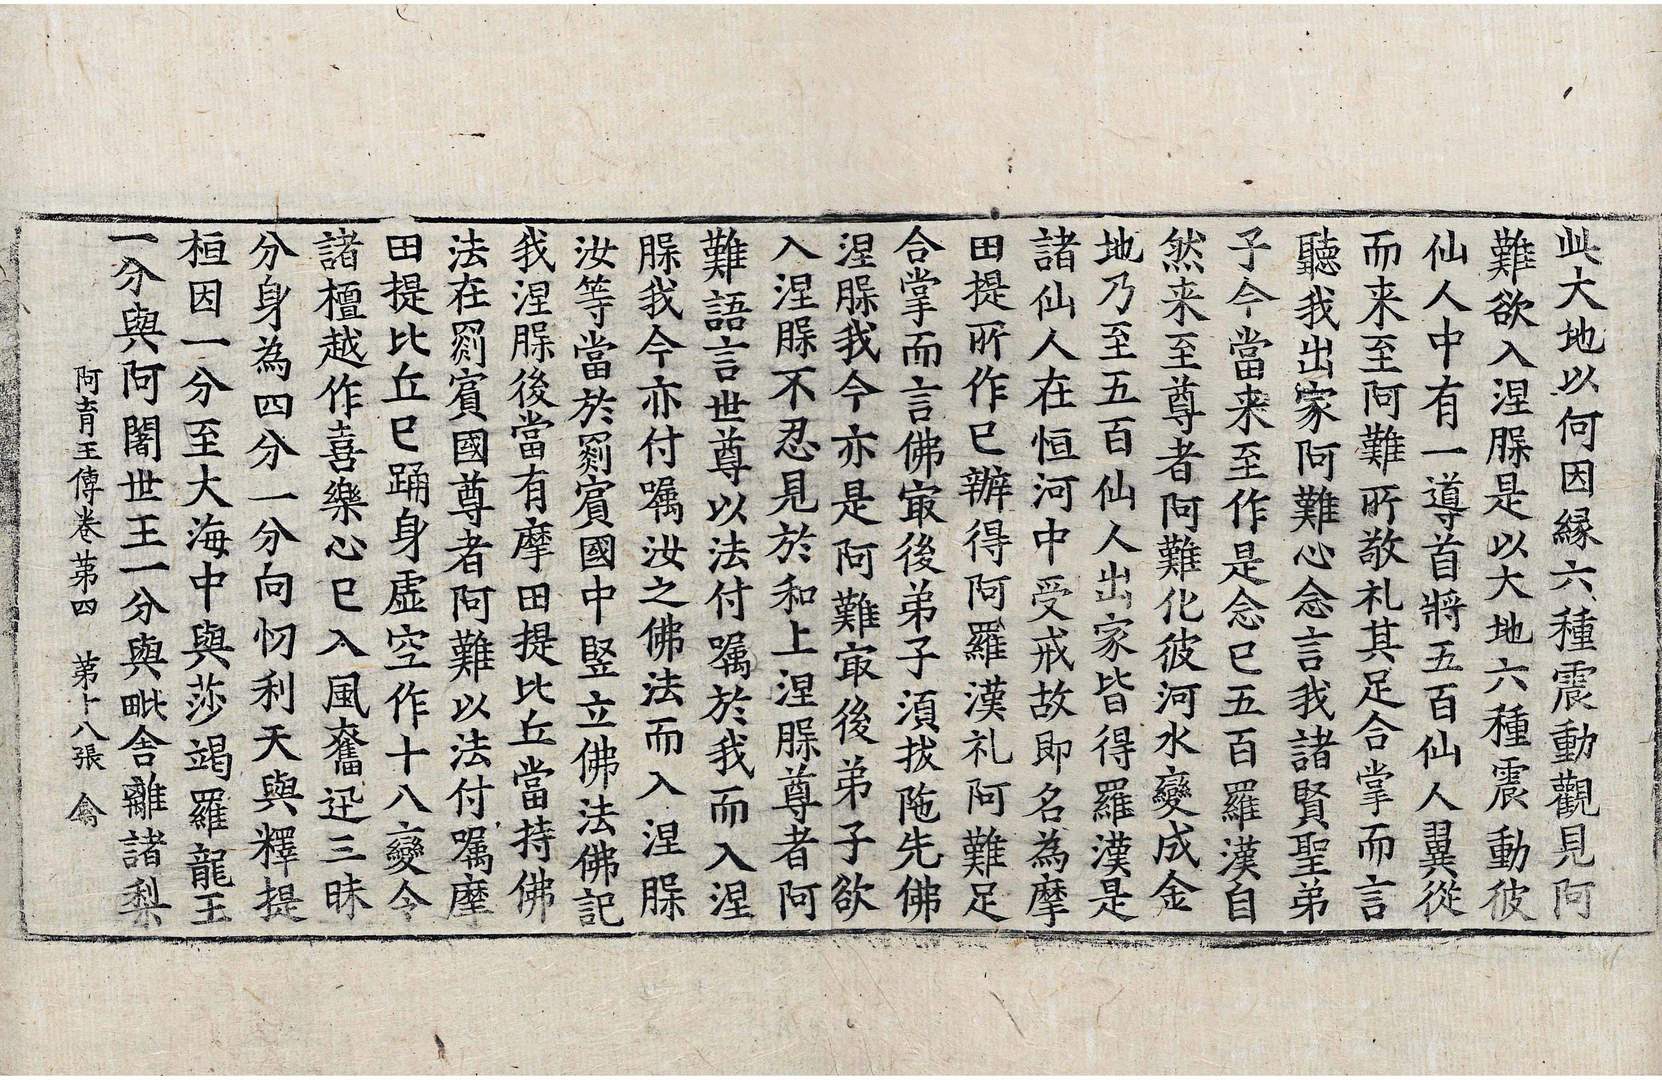 此大地以何因縁六種震動觀見阿
難欲入涅脲是以大地六種震動彼
仙人中有一導首將五百仙人翼從
而来至阿難所敬礼其足合掌而言
聽我出家阿難心念言我諸賢聖弟
子今當来至作是念已五百羅漢自
然来至尊者阿難化彼河水變成金
地乃至五百仙人出家皆得羅漢是
諸仙人在恒河中受戒故即名為摩
田提所作已辦得阿羅漢礼阿難足
合掌而言佛㝡後弟子須拔陁先佛
涅脲我今亦是阿難㝡後弟子欲
入涅脲不忍見於和上涅脲尊者阿
難語言世尊以法付嘱於我而入涅
脲我今亦付嘱汝之佛法而入涅脲
汝等當於罽賓國中竪立佛法佛記
我涅脲後當有摩田提比丘當持佛
法在罽賓國尊者阿難以法付嘱摩
田提比丘已踊身虛空作十八變令
諸檀越作喜樂心已入風奮迅三昧
分身為四分一分向忉利天與釋提
桓因一分至大海中與莎竭羅龍王
一分與阿闍世王一分與毗舍離諸梨
阿育王傳卷第四 第十八張 禽